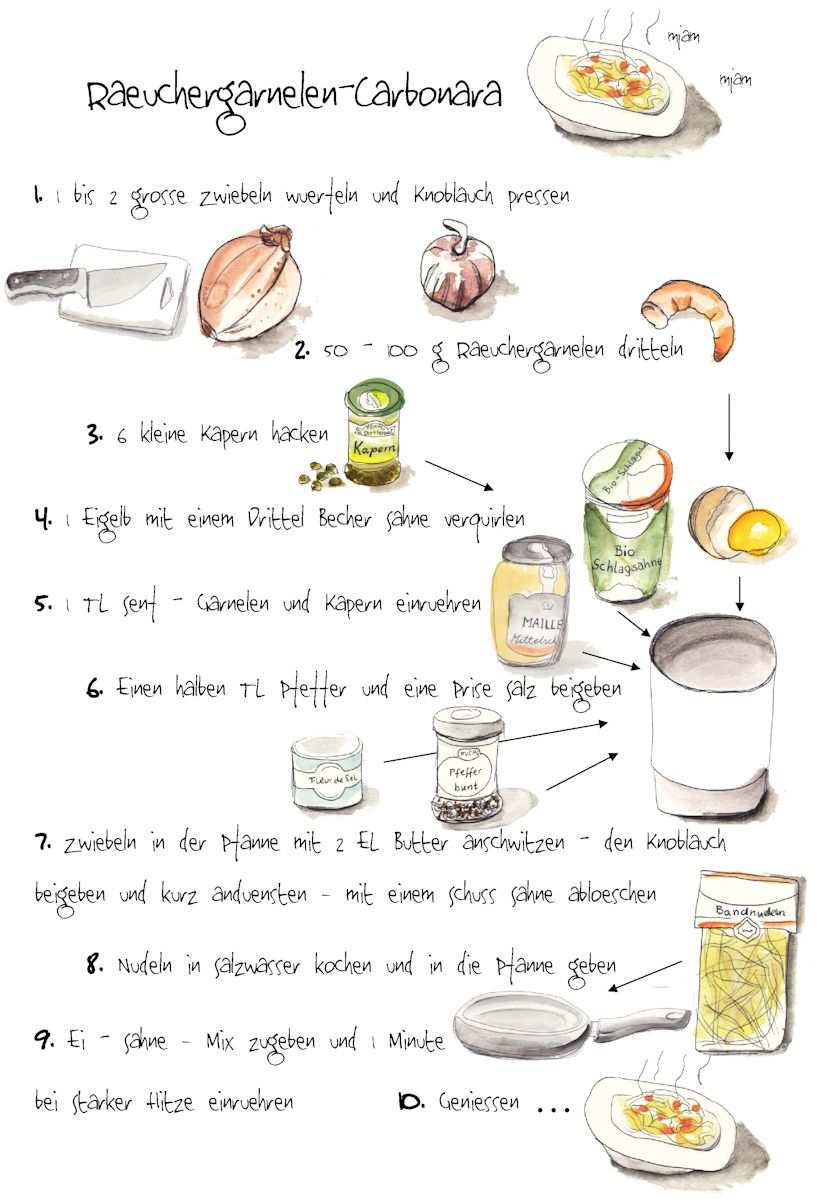 mjam
Raeuchergarnelen-Carbonara
mjam
1. 1 bis 2 grosse Zwiebeln wuerfeln und Knoblauch pressen
2. 50 - 100 g Raeuchergarnelen dritteln
3. 6 kleine Kapern hacken
Kapern
4. 1 Eigelb mit einem Drittel Becher Sahne verquirlen
Bio-Schlagsahne
Bio
Schlagsahne
5. 1 TL Senf - Garnelen und Kapern einruehren
MAILLE
Mittelsch
6. Einen halben TL Pfeffer und eine Prise Salz beigeben
Fleur de Sel
Pfeffer
bunt
7. Zwiebeln in der Pfanne mit 2 EL Butter anschwitzen - den Knoblauch
beigeben und kurz anduensten - mit einem Schuss Sahne abloeschen
Bandnudeln
8. Nudeln in Salzwasser kochen und in die Pfanne geben
9. Ei - Sahne - Mix zugeben und 1 Minute
bei starker Hitze einruehren
10. Geniessen ...